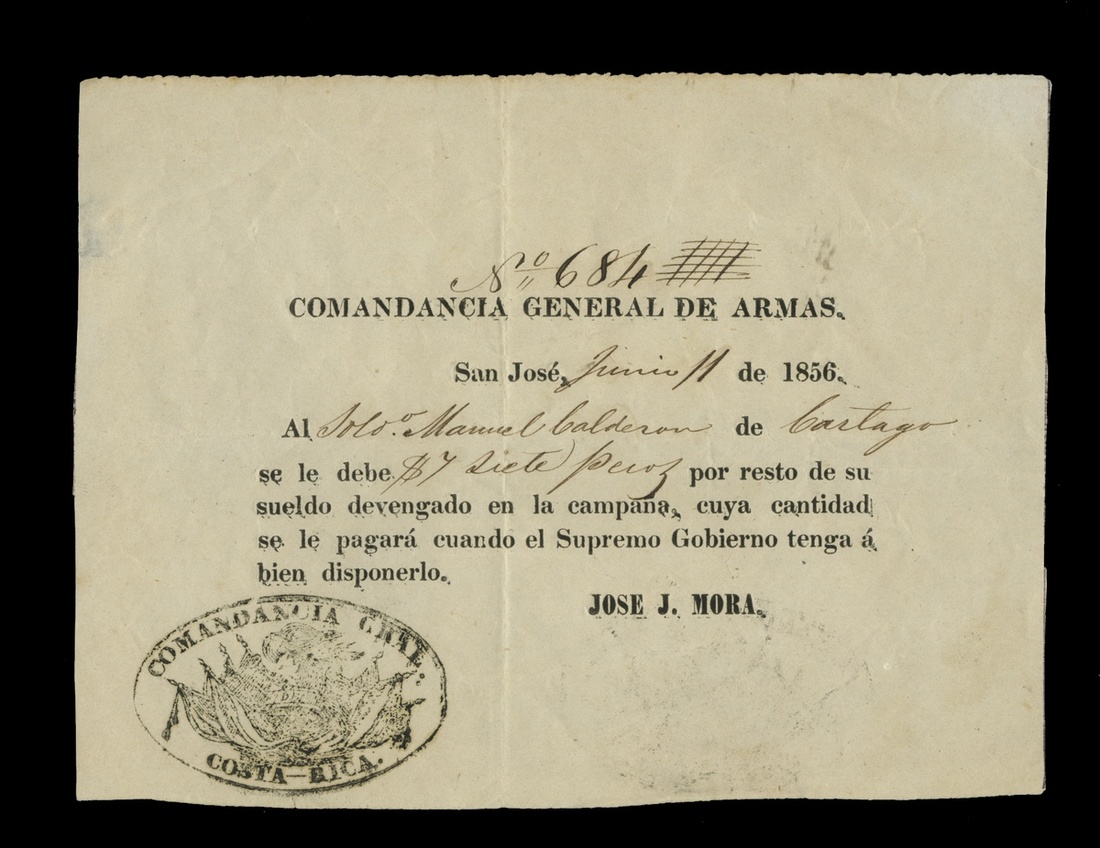 Nº 684
COMANDANCIA GENERAL DE ARMAS.
San José, Junio 11 de 1856.
Al Soldº. Manuel Calderon de Cartago
se le debe $7 siete pesos por resto de su
sueldo devengado en la campaña, cuya cantidad
se le pagará cuando el Supremo Gobierno tenga á
bien disponerlo.
JOSE J. MORA.
COMANDANCIA GRAL.
COSTA-RICA.